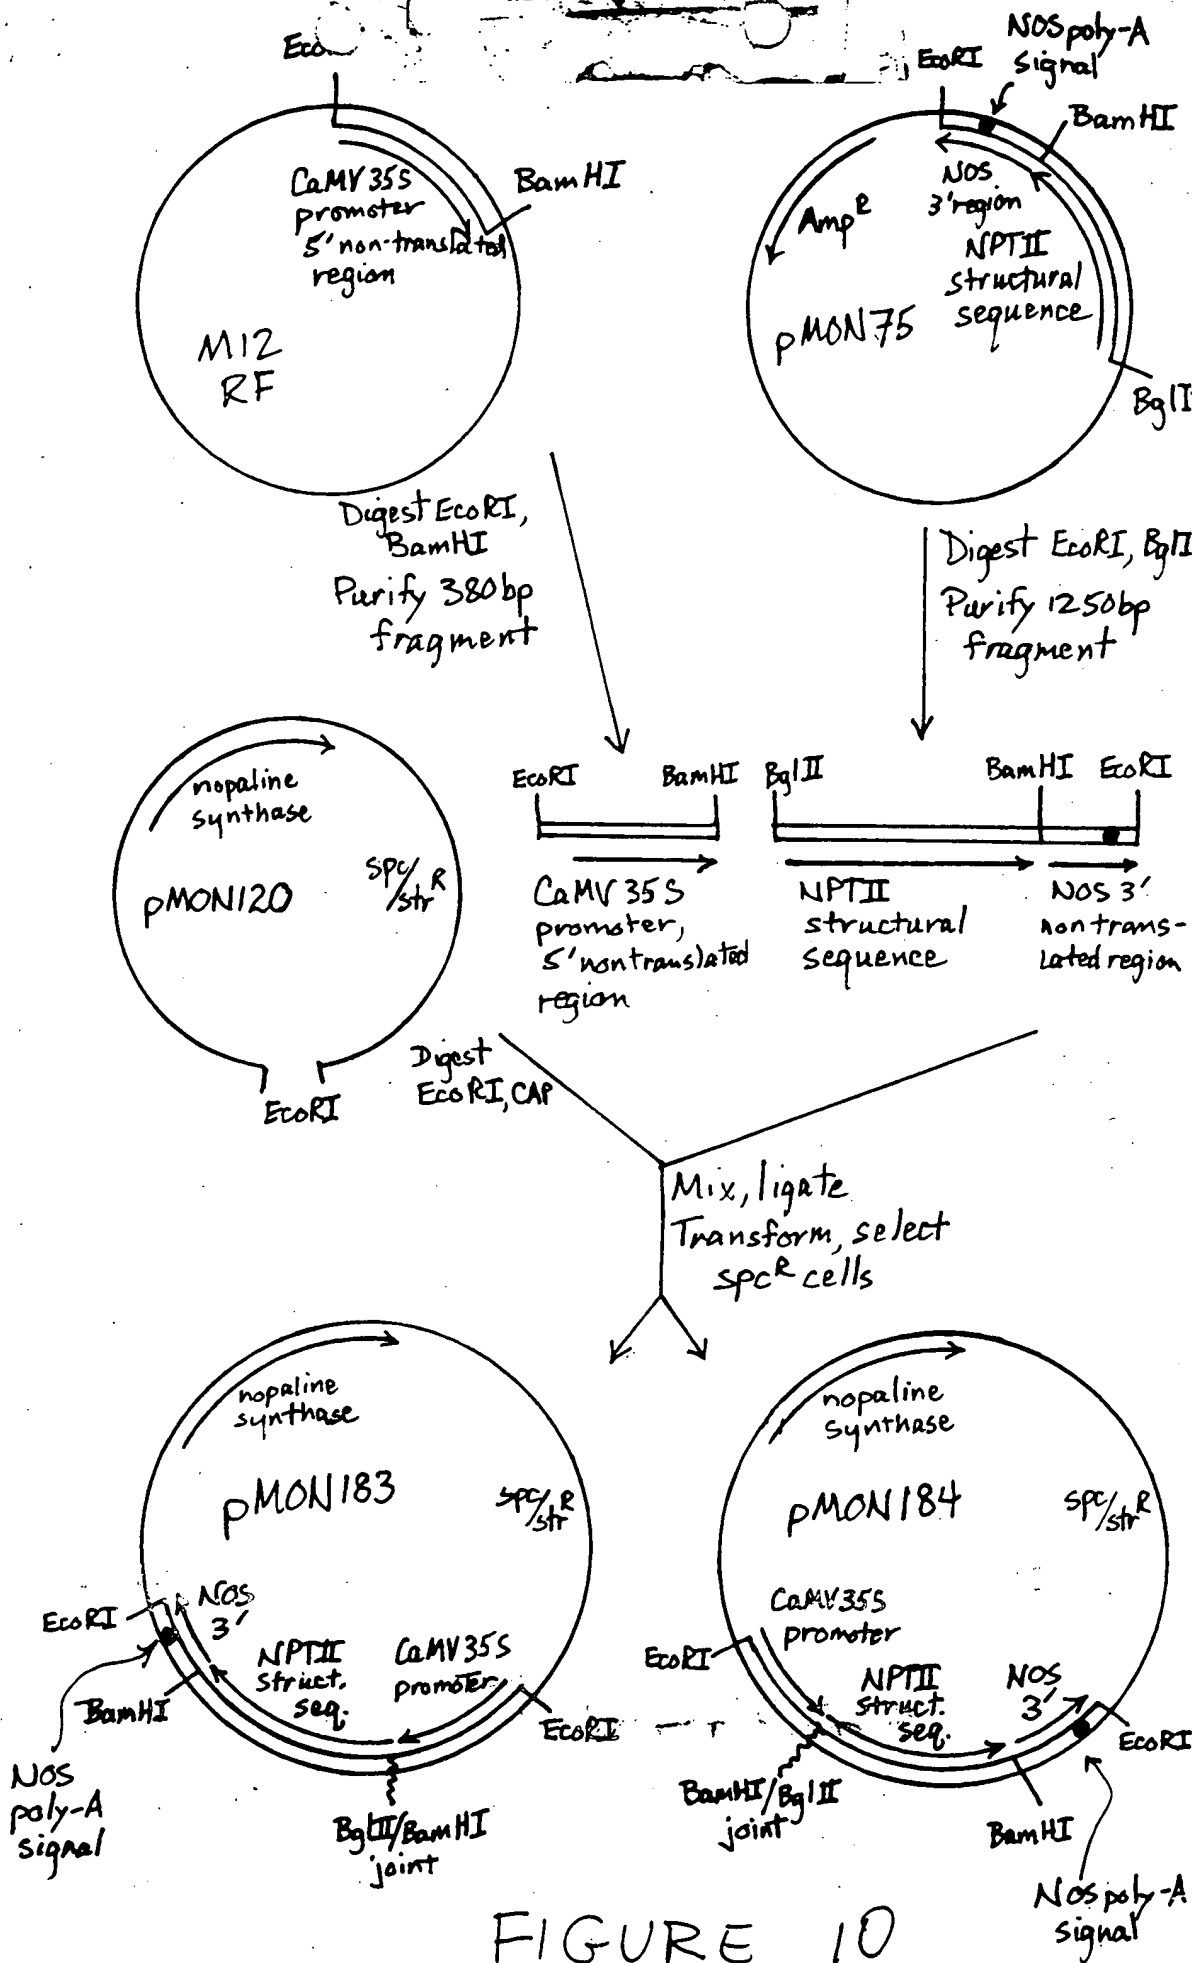 Eco
CaMV 35S
promoter
5' non-translated
region
BamHI
M12
RF
EcoRI
NOS poly-A
signal
BamHI
NOS
3' region
Amp^R
NPTII
structural
sequence
pMON75
BglII
Digest EcoRI,
BamHI
Purify 380bp
fragment
Digest EcoRI, BglII
Purify 1250bp
fragment
nopaline
synthase
pMON120
spc/str^R
EcoRI
EcoRI
BamHI
BglII
BamHI
EcoRI
CaMV 35S
promoter,
5' nontranslated
region
NPTII
structural
sequence
NOS 3'
nontrans-
lated region
Digest
EcoRI, CAP
Mix, ligate
Transform, select
spc^R cells
nopaline
synthase
pMON183
spc/str^R
EcoRI
NOS
3'
NPTII
struct.
seq.
CaMV 35S
promoter
BamHI
EcoRI
NOS
poly-A
signal
BglII/BamHI
joint
nopaline
synthase
pMON184
spc/str^R
CaMV 35S
promoter
EcoRI
NPTII
struct.
seq.
NOS
3'
EcoRI
BamHI/BglII
joint
BamHI
NOS poly-A
signal
FIGURE 10